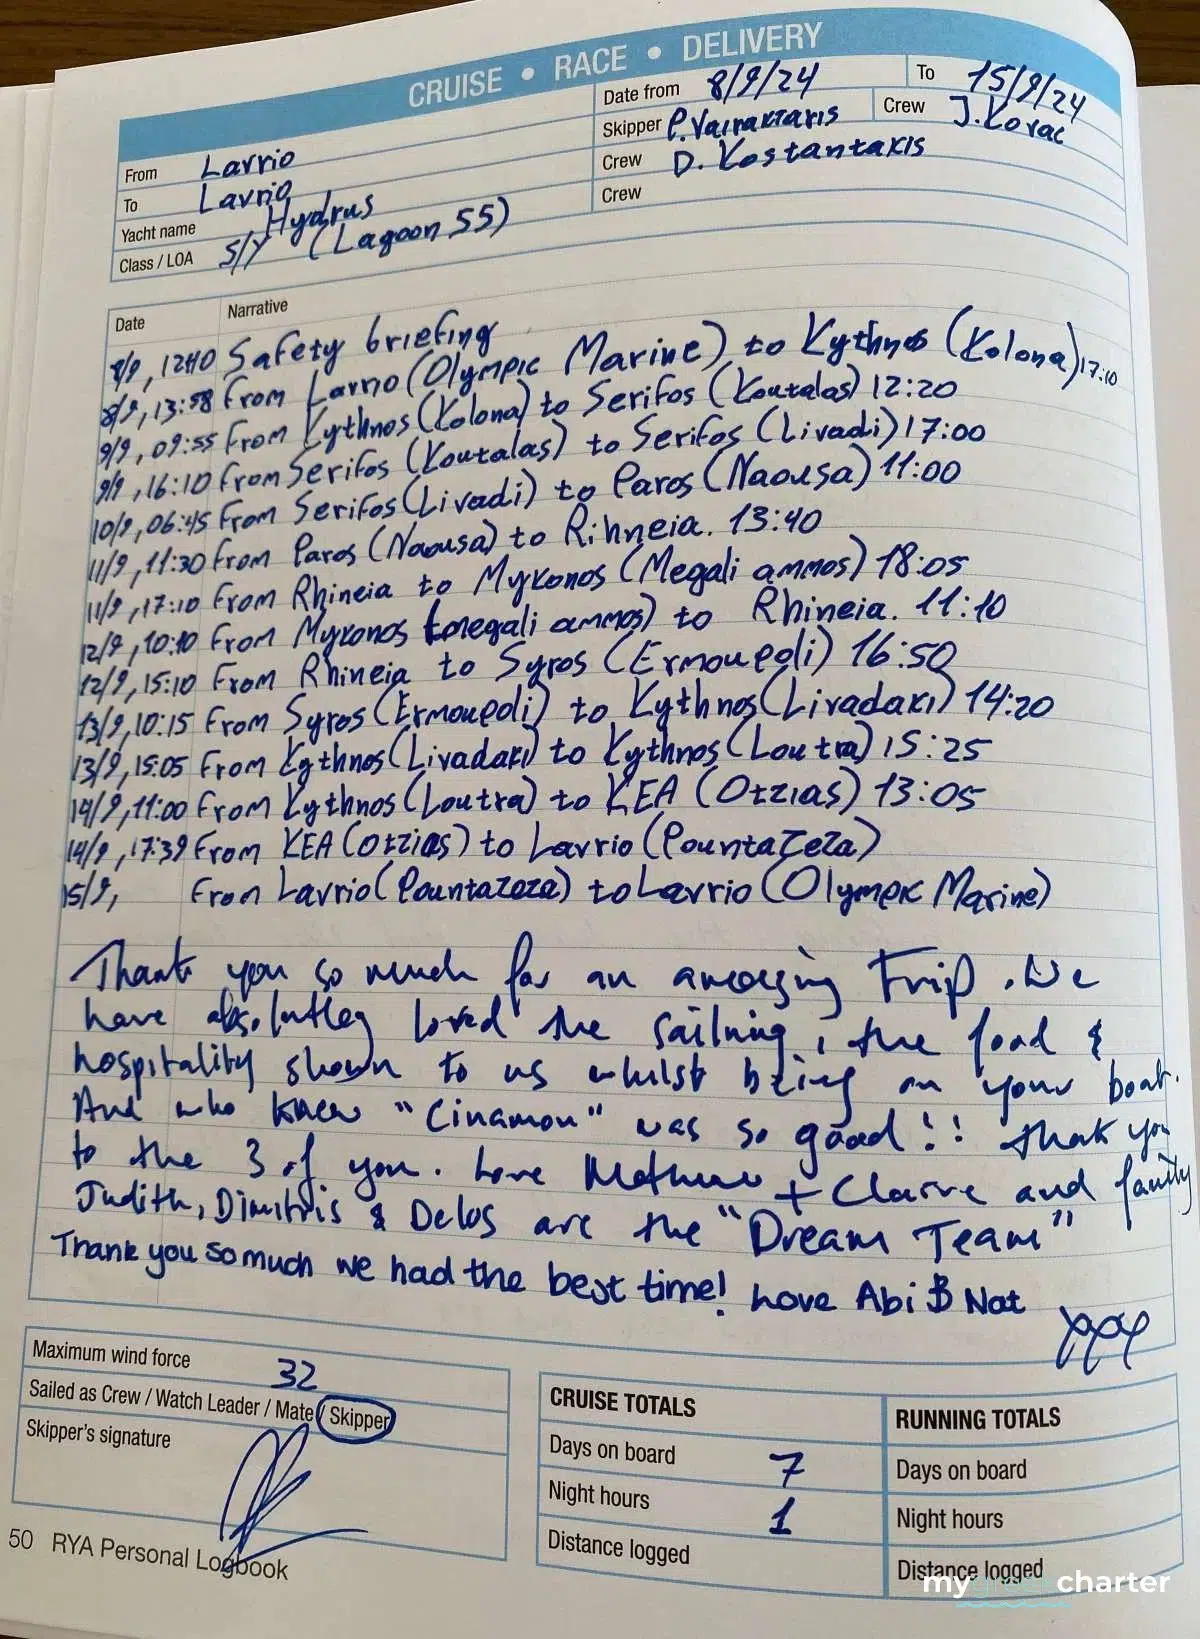 CRUISE • RACE • DELIVERY
Date from 8/9/24 To 15/9/24
Skipper P. Vairaktaris Crew J. Kovac
From Lavrio Crew D. Kostantakis
To Lavrio Crew
Yacht name Hydrus
Class / LOA S/Y (Lagoon 55)
Date Narrative
8/9, 1240 Safety briefing
8/9, 13:58 From Lavrio (Olympic Marine) to Kythnos (Kolona) 17:10
9/9, 09:55 From Kythnos (Kolona) to Serifos (Koutalas) 12:20
9/9, 16:10 From Serifos (Koutalas) to Serifos (Livadi) 17:00
10/9, 06:45 From Serifos (Livadi) to Paros (Naousa) 11:00
11/9, 11:30 From Paros (Naousa) to Rihneia. 13:40
11/9, 17:10 From Rhineia to Mykonos (Megali ammos) 18:05
12/9, 10:10 From Mykonos (megali ammos) to Rhineia. 11:10
12/9, 15:10 From Rhineia to Syros (Ermoupoli) 16:50
13/9, 10:15 From Syros (Ermoupoli) to Kythnos (Livadaki) 14:20
13/9, 15:05 From Kythnos (Livadaki) to Kythnos (Loutra) 15:25
14/9, 11:00 From Kythnos (Loutra) to KEA (Otzias) 13:05
14/9, 17:39 From KEA (Otzias) to Lavrio (Pountazeza)
15/9, From Lavrio (Pountazeza) to Lavrio (Olympic Marine)
Thank you so much for an amazing trip. We
have absolutley loved the sailning, the food &
hospitality shown to us whilst being on your boat.
And who knew "Cinamon" was so good!! Thank you
to the 3 of you. Love Mathew + Claire and family
Judith, Dimitris & Delos are the "Dream Team"
Thank you so much we had the best time! Love Abi & Nat
xxx
Maximum wind force 32
Sailed as Crew / Watch Leader / Mate / Skipper
Skipper's signature
CRUISE TOTALS
Days on board 7
Night hours 1
Distance logged
RUNNING TOTALS
Days on board
Night hours
Distance logged
50 RYA Personal Logbook
mygreekcharter